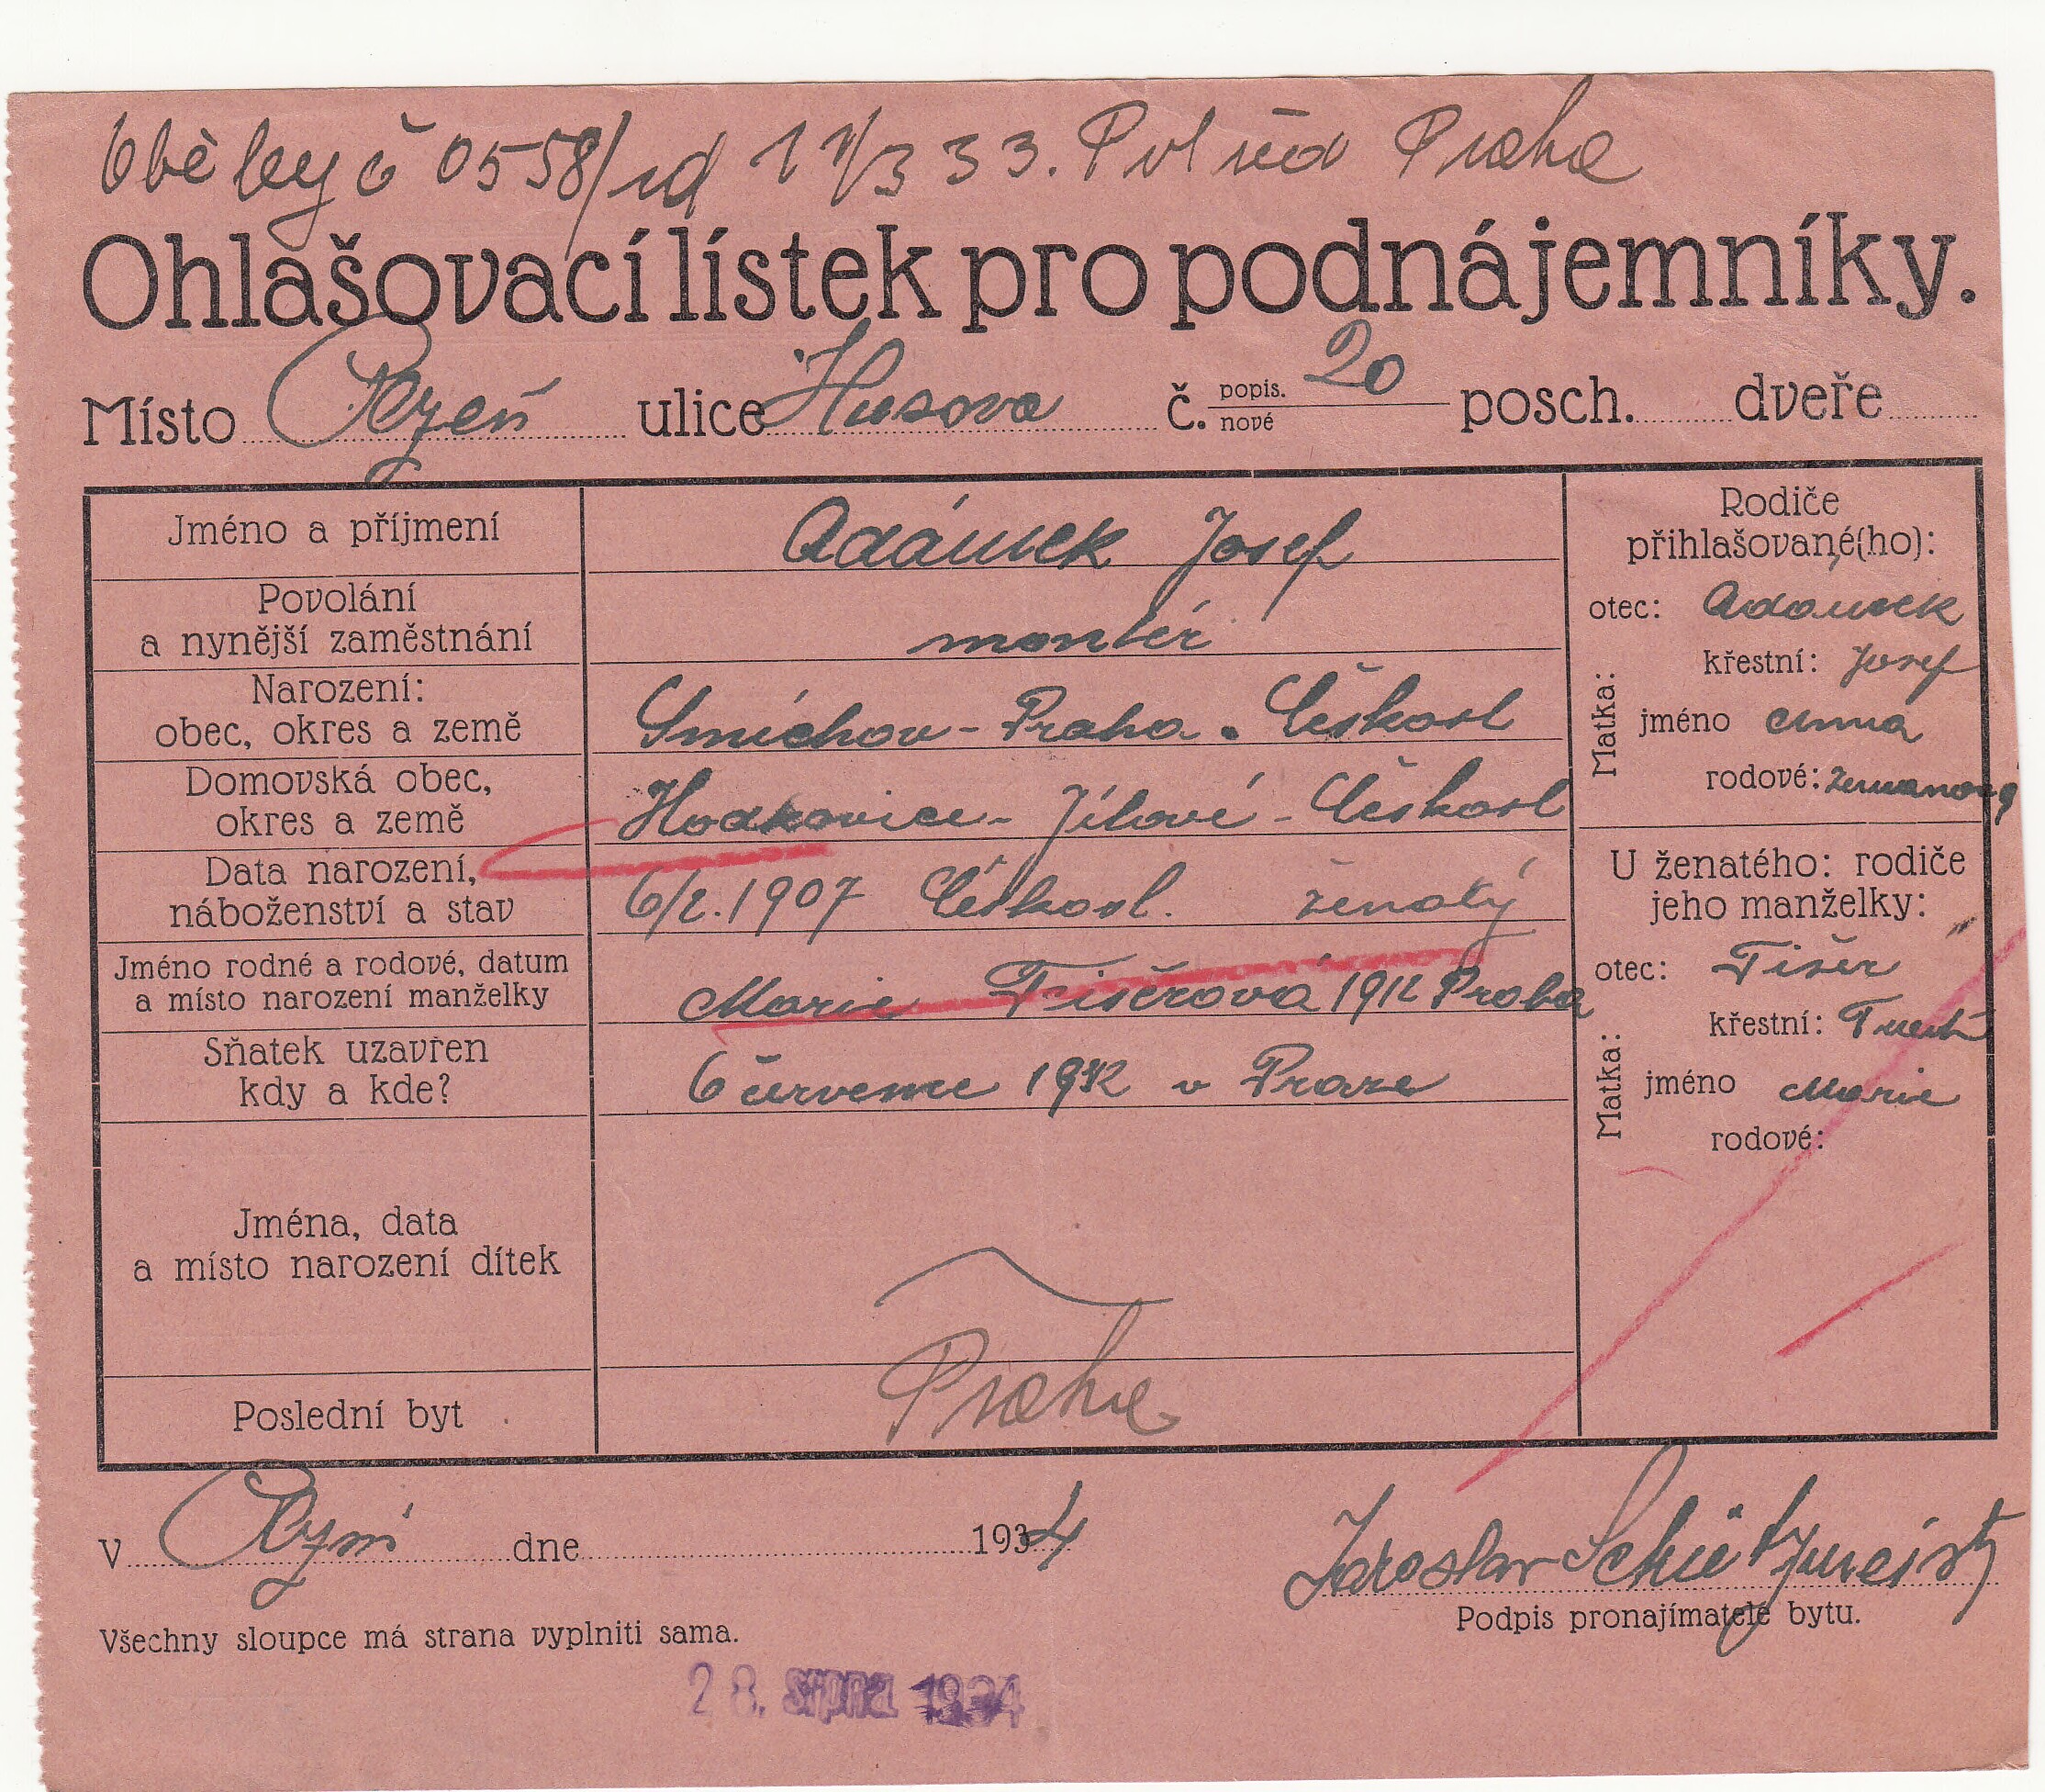 č 0558/ 33. Praha
Ohlašovací lístek pro podnájemníky.
Místo Plzeň ulice Husova č. popis. nové 20 posch. dveře
Jméno a příjmení
Adámek Josef
Povolání
a nynější zaměstnání
montér
Narození:
obec, okres a země
Smíchov - Praha - Českosl
Domovská obec,
okres a země
Hodkovice - Jílové - Českosl
Data narození,
náboženství a stav
6/2. 1907 Českosl. ženatý
Jméno rodné a rodové, datum
a místo narození manželky
Marie Fišerová 1912 Praha
Sňatek uzavřen
kdy a kde?
6 července v Praze
Jména, data
a místo narození dítek
Poslední byt
Praha
Rodiče
přihlašované(ho):
otec: Adámek
křestní: Josef
Matka:
jméno Anna
rodové: Zemanová
U ženatého: rodiče
jeho manželky:
otec: Fišer
křestní:
Matka:
jméno Marie
rodové:
V Plzni dne 1934
Jaroslav
Podpis pronajímatele bytu.
Všechny sloupce má strana vyplniti sama.
28. srpna 1934